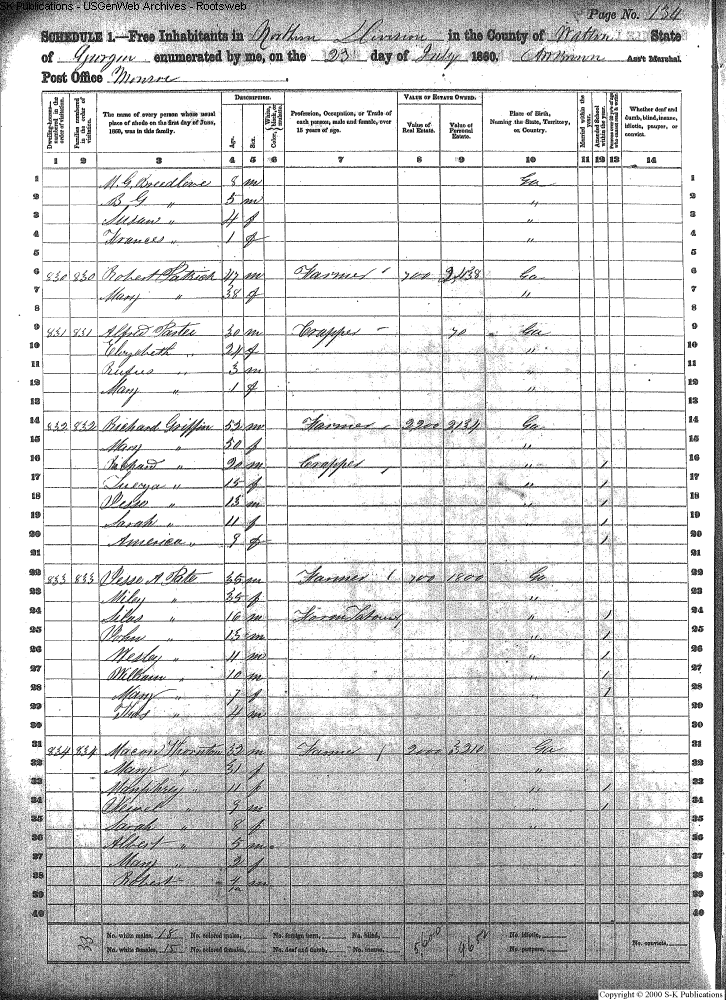 S-K Publications - USGenWeb Archives - Rootsweb
Page No. 134
SCHEDULE 1.—Free Inhabitants in Northern Division in the County of Walton State
of Georgia enumerated by me, on the 23 day of July 1860. Ass't Marshal.
Post Office Monroe
Dwelling-houses—numbered in the order of visitation.
Families numbered in the order of visitation.
The name of every person whose usual place of abode on the first day of June, 1860, was in this family.
DESCRIPTION.
Age.
Sex.
Color, White, black, or mulatto.
Profession, Occupation, or Trade of each person, male and female, over 15 years of age.
VALUE OF ESTATE OWNED.
Value of Real Estate.
Value of Personal Estate.
Place of Birth, Naming the State, Territory, or Country.
Married within the year.
Attended School within the year.
Whether deaf and dumb, blind, insane, idiotic, pauper, or convict.
1 2 3 4 5 6 7 8 9 10 11 12 13 14
1 M. G. Breedlove 8 m Ga 1
2 B G " 5 m " 2
3 Susan " 4 f " 3
4 Frances " 1 f " 4
5 5
6 830 830 Robert Patrick 47 m Farmer 700 2,438 Ga 6
7 Mary " 38 f " 7
8 8
9 831 831 Alfred 30 m Crapper 70 Ga 9
10 Elizabeth " 24 f " 10
11 Rufus " 3 m " 11
12 Mary " 1 f " 12
13 13
14 832 832 Richard Griffin 52 m Farmer 2200 2134 Ga 14
15 Mary " 50 f " 15
16 Richard " 20 m Crapper " 1 16
17 " 15 f " 1 17
18 Jesse " 13 m " 1 18
19 Sarah " 11 f " 1 19
20 America " 9 f " 1 20
21 21
22 833 833 Jesse A Pate 35 m Farmer 700 1800 Ga 22
23 Miley " 35 f " 23
24 Silas " 16 m Farm Labour " 1 24
25 John " 13 m " 1 25
26 Wesley " 11 m " 1 26
27 William " 10 m " 1 27
28 Mary " 7 f " 1 28
29 Thos " 4 m 29
30 30
31 834 834 Macon Thornton 32 m Farmer 2000 3210 Ga 31
32 Mary " 31 f " 32
33 Manphrey " 11 f " 1 33
34 " 9 m " 1 34
35 Sarah " 8 f " 35
36 Albert " 5 m 36
37 Mary " 2 f 37
38 Robert " 4/12 m 38
39 39
40 40
33 No. white males, 18 No. colored males, No. foreign born, No. blind, 5600 9652 No. idiotic,
No. white females, 15 No. colored females, No. deaf and dumb, No. insane, No. paupers, No. convicts,
Copyright © 2000 S-K Publications